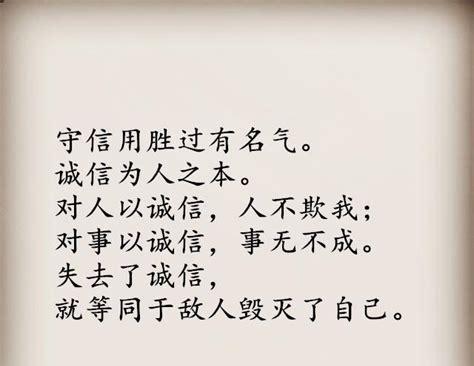 守信用胜过有名气。
诚信为人之本。
对人以诚信，人不欺我；
对事以诚信，事无不成。
失去了诚信，
就等同于敌人毁灭了自己。